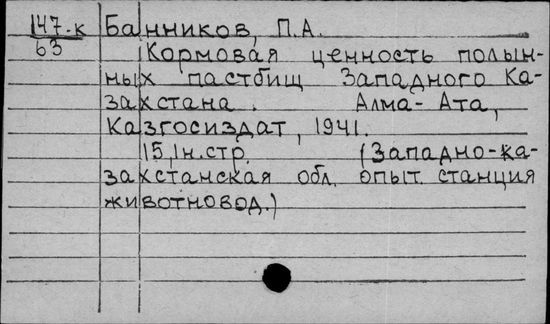 147-к Банников, П.А.
63
Кормовая ценность полын-
ных пастбищ Западного Ка-
захстана. Алма-Ата,
Казгосиздат, 1941.
15, 1н.стр. (Западно-ка-
захстанская обл. опыт. станция
животновод.)